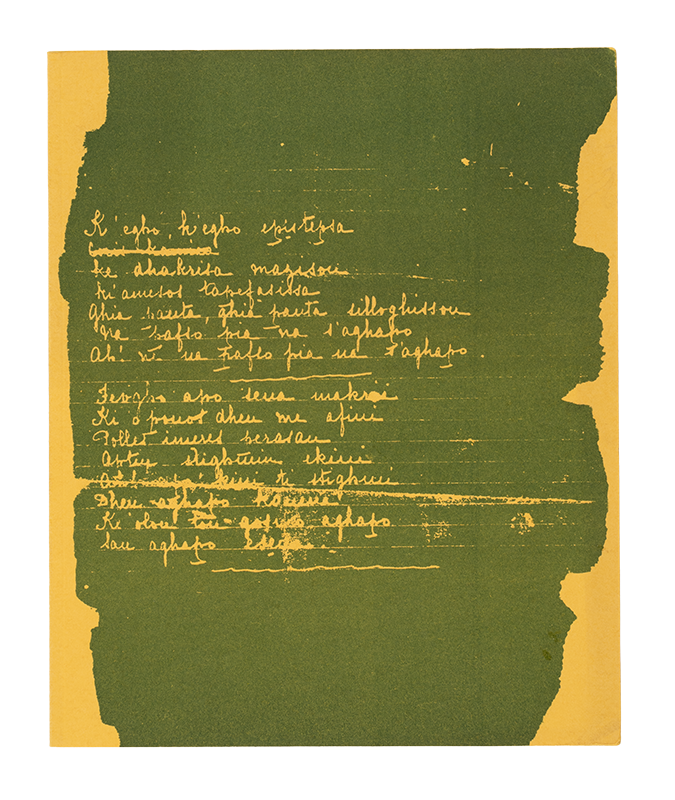 K'egho, k'egho epistepsa
ke dhakrisa mazisou
ki'amesos tapefasissa
Ghia panta, ghia panta silloghissou
Na pafso pia na s'aghapo
Ah! na pafso pia na s'aghapo.
Fevgho apo sena makria
Ki o ponos dhen me afini
Polles imeres perasan
Aptin stighmin ekini
ti stighmi
Dhen aghapo
Ke olon ton aghapo
San aghapo esena